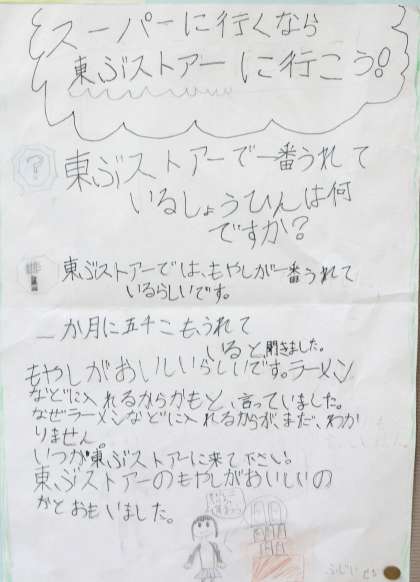 スーパーに行くなら
東ぶストアーに行こう!
?
東ぶストアーで一番うれて
いるしょうひんは何
ですか?
東ぶストアーでは、もやしが一番うれて
いるらしいです。
一か月に五千こも、うれて
いると、聞きました。
もやしがおいしいらしいです。ラーメン
などに入れるからかもと、言っていました。
なぜラーメンなどに入れるからが、まだ、わか
りません。
いつか東ぶストアーに来て下さい!
東ぶストアーのもやしがおいしいの
かとおもいました。